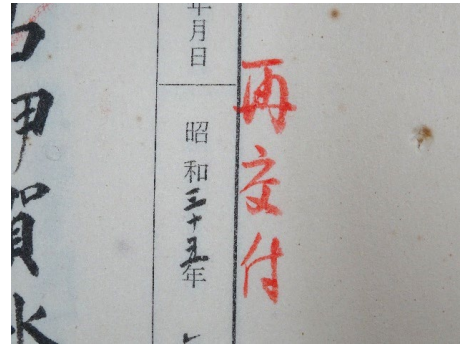 再交付
年月日 昭和三十五年
名甲賀水